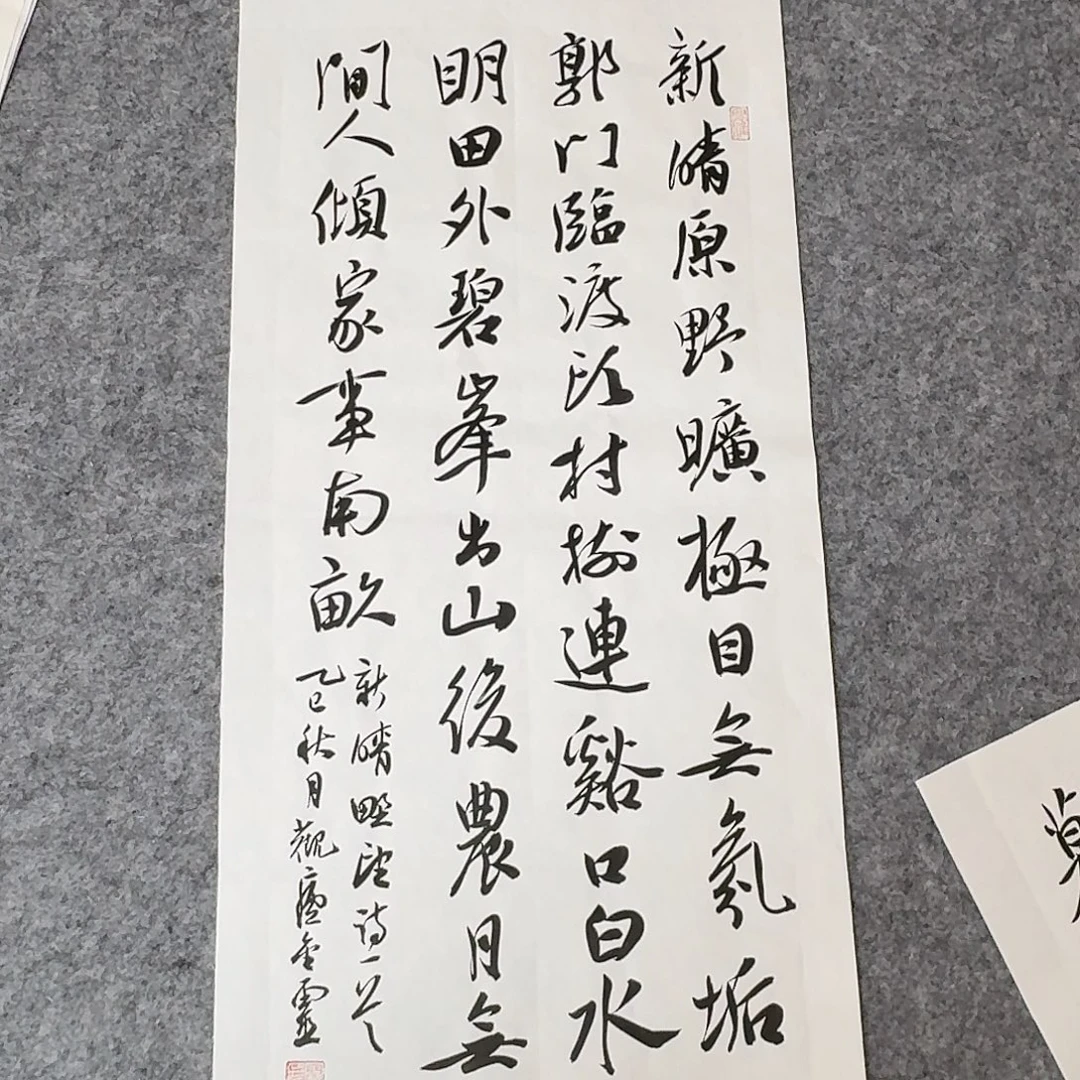 新晴原野曠極目無氛垢
郭門臨渡頭村樹連谿口白水
明田外碧峯出山後農月無
閒人傾家事南畝
新晴野望詩一首
乙巳秋月觀廬金靈